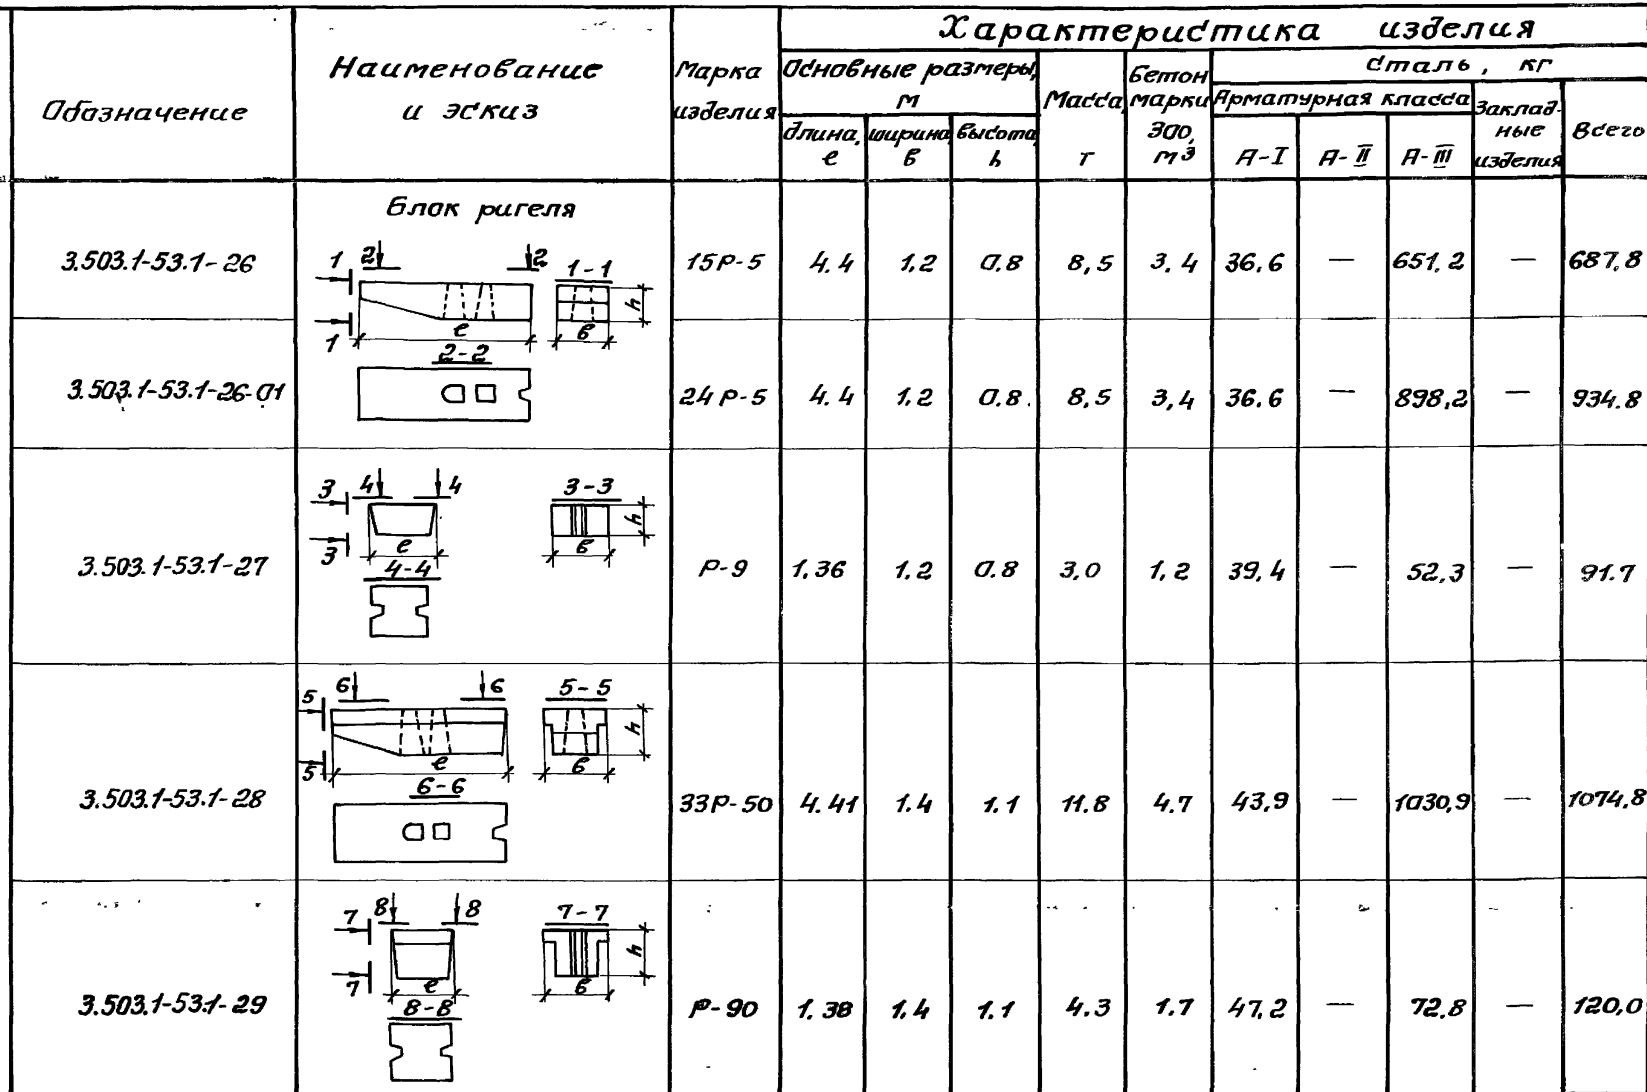 Характеристика изделия
Обозначение
Наименование
и эскиз
Марка
изделия
Основные размеры,
м
длина,
ℓ
ширина
в
высота
h
Масса,
т
бетон
марки
300,
м³
сталь, кг
Арматурная класса
А-I
А-II
А-III
Заклад-
ные
изделия
Всего
Блок ригеля
3.503.1-53.1-26
1 2 2 1-1
h
1 ℓ в
2-2
15Р-5 4.4 1.2 0.8 8,5 3.4 36.6 — 651,2 — 687,8
3.503.1-53.1-26-01
24Р-5 4.4 1.2 0.8 8,5 3,4 36.6 — 898,2 — 934.8
3.503.1-53.1-27
3 4 4 3-3
h
3 ℓ в
4-4
Р-9 1.36 1.2 0.8 3,0 1,2 39,4 — 52,3 — 91.7
3.503.1-53.1-28
5 6 6 5-5
h
5 ℓ в
6-6
33Р-50 4.41 1.4 1.1 11.8 4.7 43,9 — 1030,9 — 1074,8
3.503.1-53.1-29
7 8 8 7-7
h
7 ℓ в
8-8
Р-90 1.38 1.4 1.1 4.3 1.7 47,2 — 72,8 — 120,0